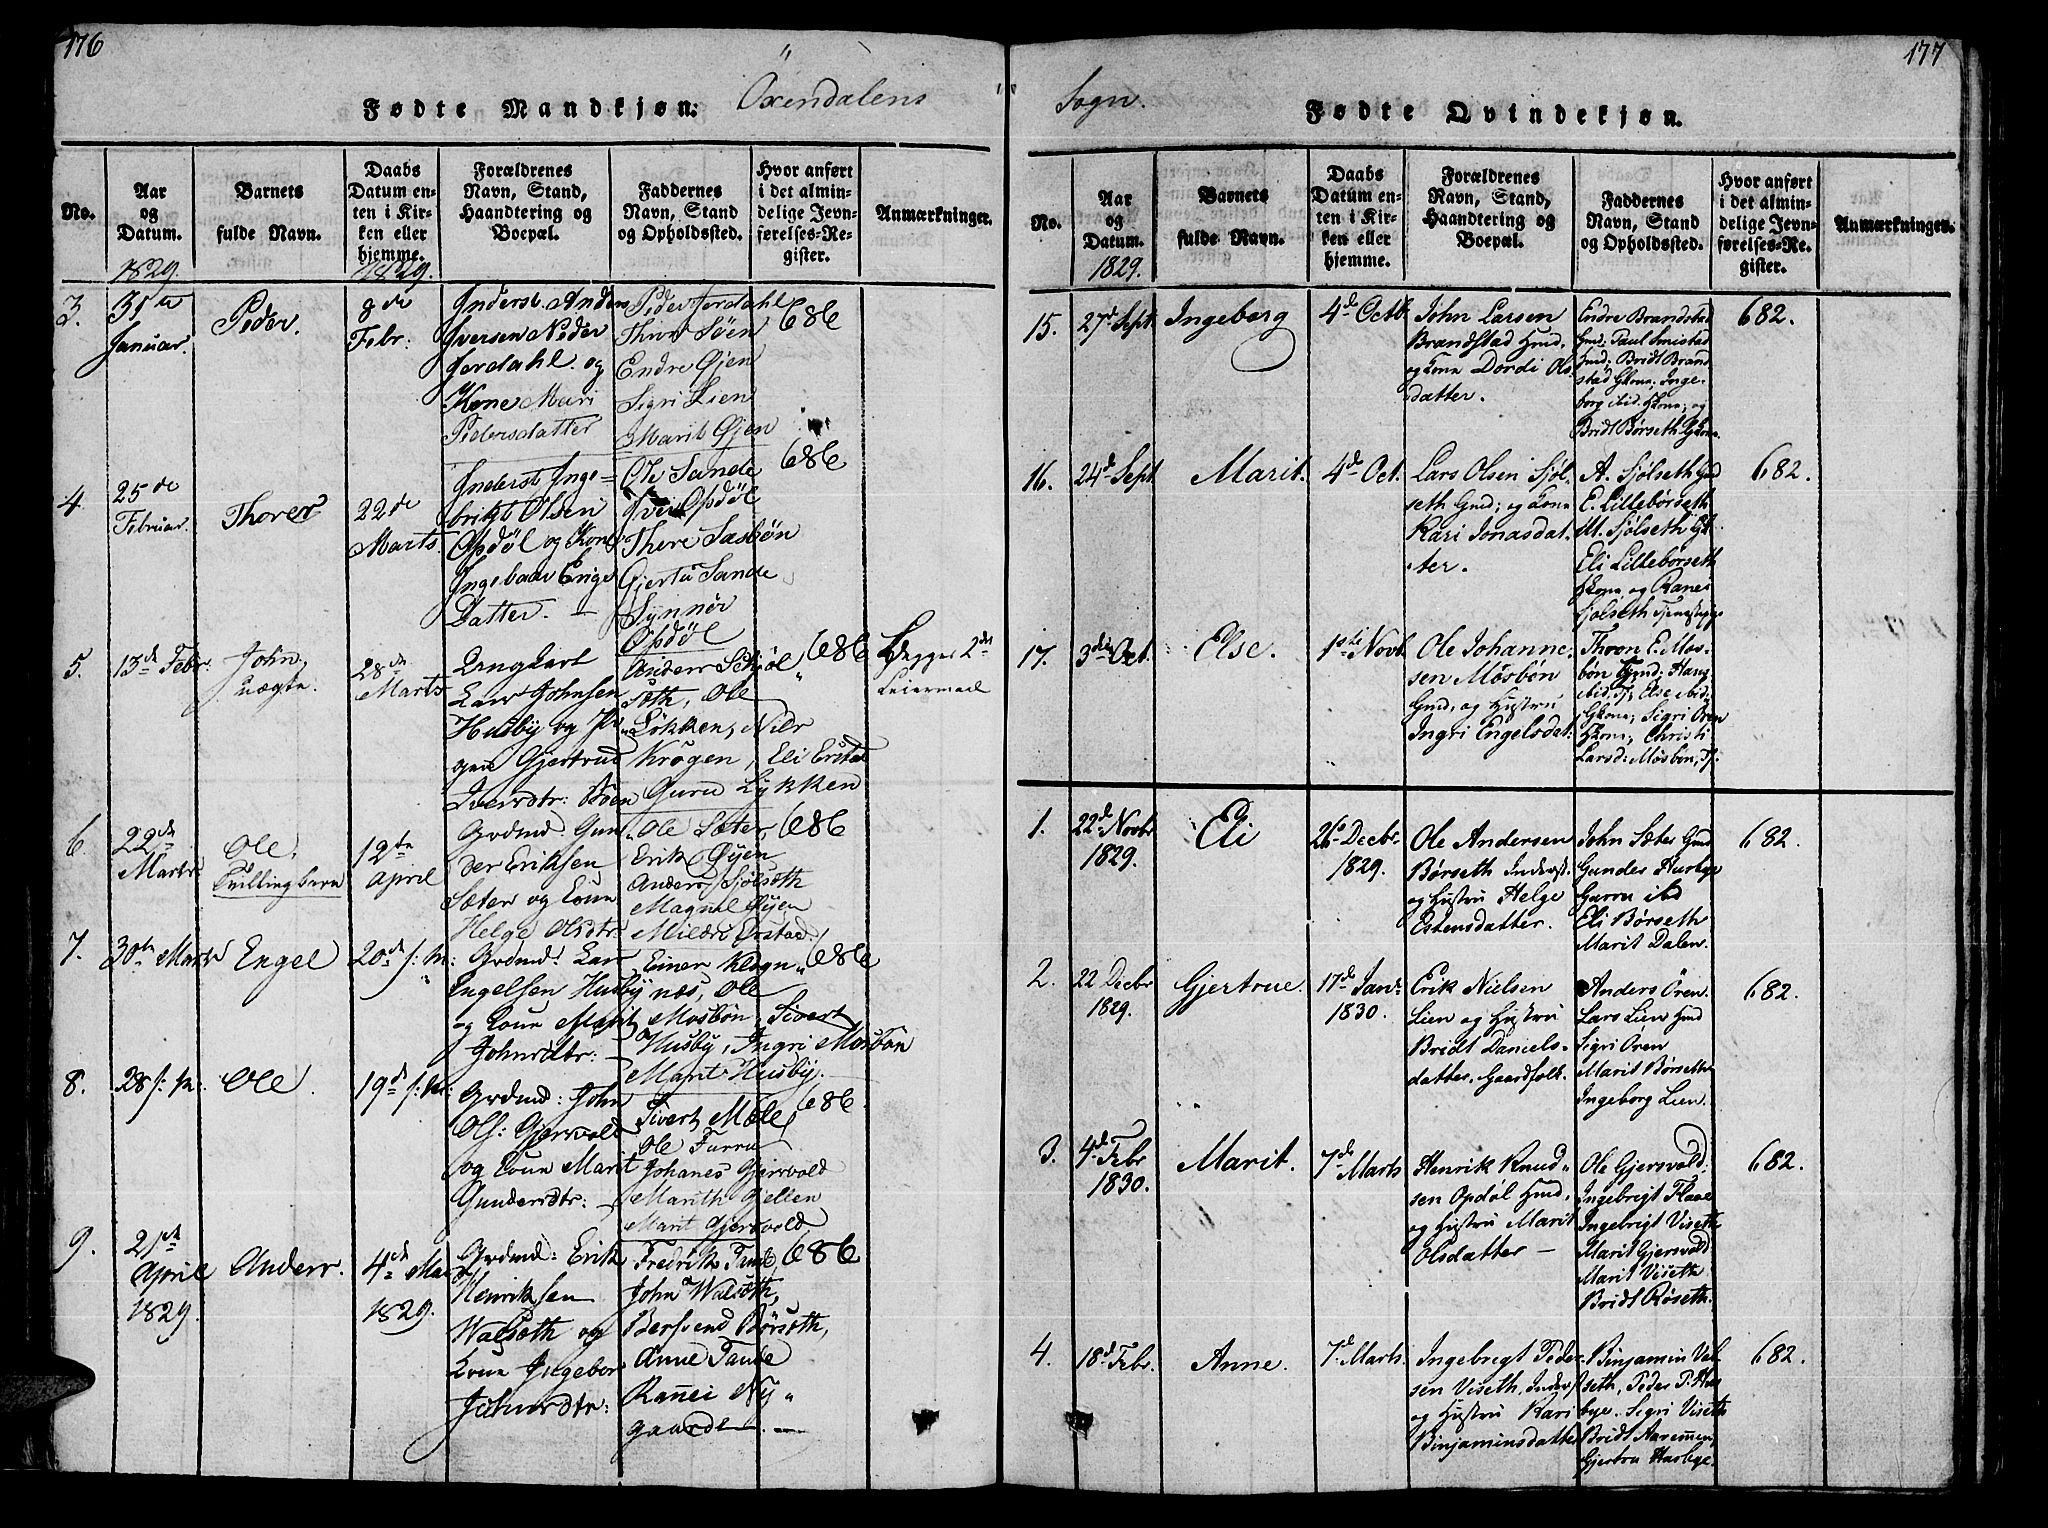 176
Fødte Mandkjøn:
Öxendalens
No.
Aar
og
Datum.
Barnets
fulde Navn.
Daabs
Datum en-
ten i Kir-
ken eller
hjemme.
Forældrenes
Navn, Stand,
Haandtering og
Boepæl.
Faddernes
Navn, Stand
og Opholdssted.
Hvor anført
i det almin-
delige Jevn-
førelses-Re-
gister.
Anmærkninger.
1829.
1829.
3.
31te
Januar.
Peder.
8de
Febr:
Inderst. Anders
Iversen Neder
Jordahl. og
Kone Mari
Pedersdatter
Peder Jordahl
Thor Söen
Endre Øjen
Sigri Lien
Marit Øjen
686
4.
25de
Februar.
Thorer
22de
Marts.
Inderst Inge-
brigt Olsen
Opdøl og Kone
Datter. —
Ole Sande
Iver Opdøl
Gjertu Sande
Synnör
Opdöl
686
5.
13d Febr:
John,
uægte.
28de
Marts
Ungkarl
Lars Johnsen
Husby og Pi-
gen Gjertrud
Iversdtr: Söen
Anders Sjöl-
seth, Ole
Løkken, Nils
Krögen, Eli Erstad
Guru Løkken
686
Begges 2det
Leiermaal
6
22de
Marts
Ole.
Tvillingbarn
12te
April
Grdmd. Gun-
der Eriksen
Sæter og Kone
Helge Olsdtr.
Ole Sæter,
Erik Øyen
Anders Sjölseth
Magnil Øyen
Mildri Erstad.
686
7.
30te Marts
Engel
20de s: M:
Grdmd: Lars
Engelsen Husby
og Kone Marit
Johnsdtr: —
Einer Klogn-
næs, Ole
Mosbön, Sivert
Husby, Ingri Mosbön
Marit Husby.
686
8.
28 s: M:
Ole.
19de s: M:
Grdmd: John
Ols: Gjersvold
og Kone Marit
Gundersdtr: —
Sivert Mæle
Ole Furru
Johanes Gjersvold
Marith Gjellen
Marit Gjersvold
686.
9.
21de
April
1829.
Anders.
4de Mai
1829.
Grdmd: Erik
Henriksen
Walseth og
Kone Ingebor
Johnsdtr:
Fredrik Fande
John Walseth,
Bersvend Börseth,
Anne Fande
Rannei Ny-
gaarde. —
686
177
Sogn.
Fødte Qvindekjøn.
No.
Aar
og
Datum.
1829.
Barnets
fulde Navn.
Daabs
Datum en-
ten i Kir-
ken eller
hjemme.
Forældrenes
Navn, Stand,
Haandtering og
Boepæl.
Faddernes
Navn, Stand
og Opholdssted.
Hvor anført
i det almin-
delige Jevn-
førelses-Re-
gister.
Anmærkninger.
15.
27d Sept.
Ingeborg
4de Octb.
John Larsen
Brandstad Hmd.
og Kone Dordi Ols-
datter.
Endre Brandstad
Gmd; Paul Smistad
Hmd; Bridt Brand-
stad Gkone; Inge-
borg ibid. Hkone; og
Bridt Børseth Gkone.
682.
16.
24d Sept
Marit.
4de Oct.
Lars Olsen Sjöl-
seth Gmd; og Kone
Kari Jonasdat-
ter.
A. Sjölseth Gmd
E. Lillebörseth
M. Sjölseth Gk.
Eli Lillebörseth
Hkone og Ranei
Sjolseth Tjenestpige
682.
17.
3die Oct.
Else.
1ste Novb.
Ole Johanne-
sen Mösbön
Gmd, og Hustru
Ingri Engelsdat:
Thron E. Mos-
bön Gmd; Hans
ibid. Tj; Else ibid:
Gkone; Sigri Oren
Hkone; Christi
Larsd: Mösbön, Tj.
1.
22d Novbr
1829.
Eli
26de Decbr.
1829.
Ole Andersen
Börseth Inderst.
og Hustru Helge
Estensdatter.
John Sæter Gmd
Gunder Husbye
Gurru ibd
Eli Börseth
Marit Dalen.
682.
2.
22 Decbr
1829.
Gjertrue.
17de Janr
1830.
Erik Nielsen
Lien og Hustru
Bridt Daniels-
datter. Gaardfolk.
Anders Ören
Lars Lien Gmd
Sigri Ören
Marit Børseth
Ingeborg Lien.
682.
3.
4de Febr
1830.
Marit.
7de Marts
Henrik Knud-
sen Opdöl Hmd.
og Hustru Marit
Olsdatter —
Ole Gjersvold.
Ingebrigt Flaae
Ingebrigt Viseth
Marit Gjersvold
Marit Viseth
Bridt Röseth.
682.
4.
18d Febr.
Anne.
7d Marts.
Ingebrigt Peder-
sen Viseth. Inderst
og Hustru Kari
Binjaminsdatter
Binjamin Vi-
seth, Peder P. Hus-
bye. Sigri Viseth
Bridt Aaremmen,
Gjertru Husbye.
682.